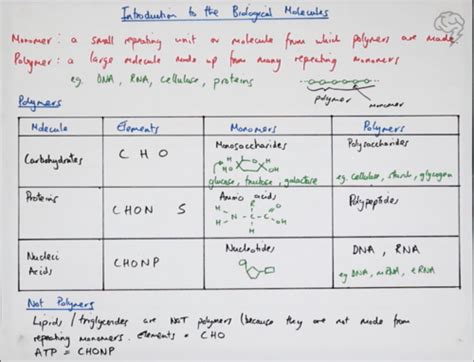 Introduction to the Biological Molecules
Monomer : a small repeating unit or molecule from which polymers are made
Polymer : a large molecule made up from many repeating monomers
eg. DNA, RNA, cellulose, proteins
polymer
monomer
Polymers
Molecule Elements Monomers Polymers
Carbohydrates C H O Monosaccharides Polysaccharides
H O H
HO OH
glucose, fructose, galactose eg. cellulose, starch, glycogen
Proteins CHON S Amino acids Polypeptides
R
H - N - C - C
H H
Nucleic Acids CHONP Nucleotides DNA, RNA
eg DNA, mRNA, tRNA
Not Polymers
Lipids / triglycerides are NOT polymers (because they are not made from
repeating monomers. Elements = CHO
ATP = CHONP